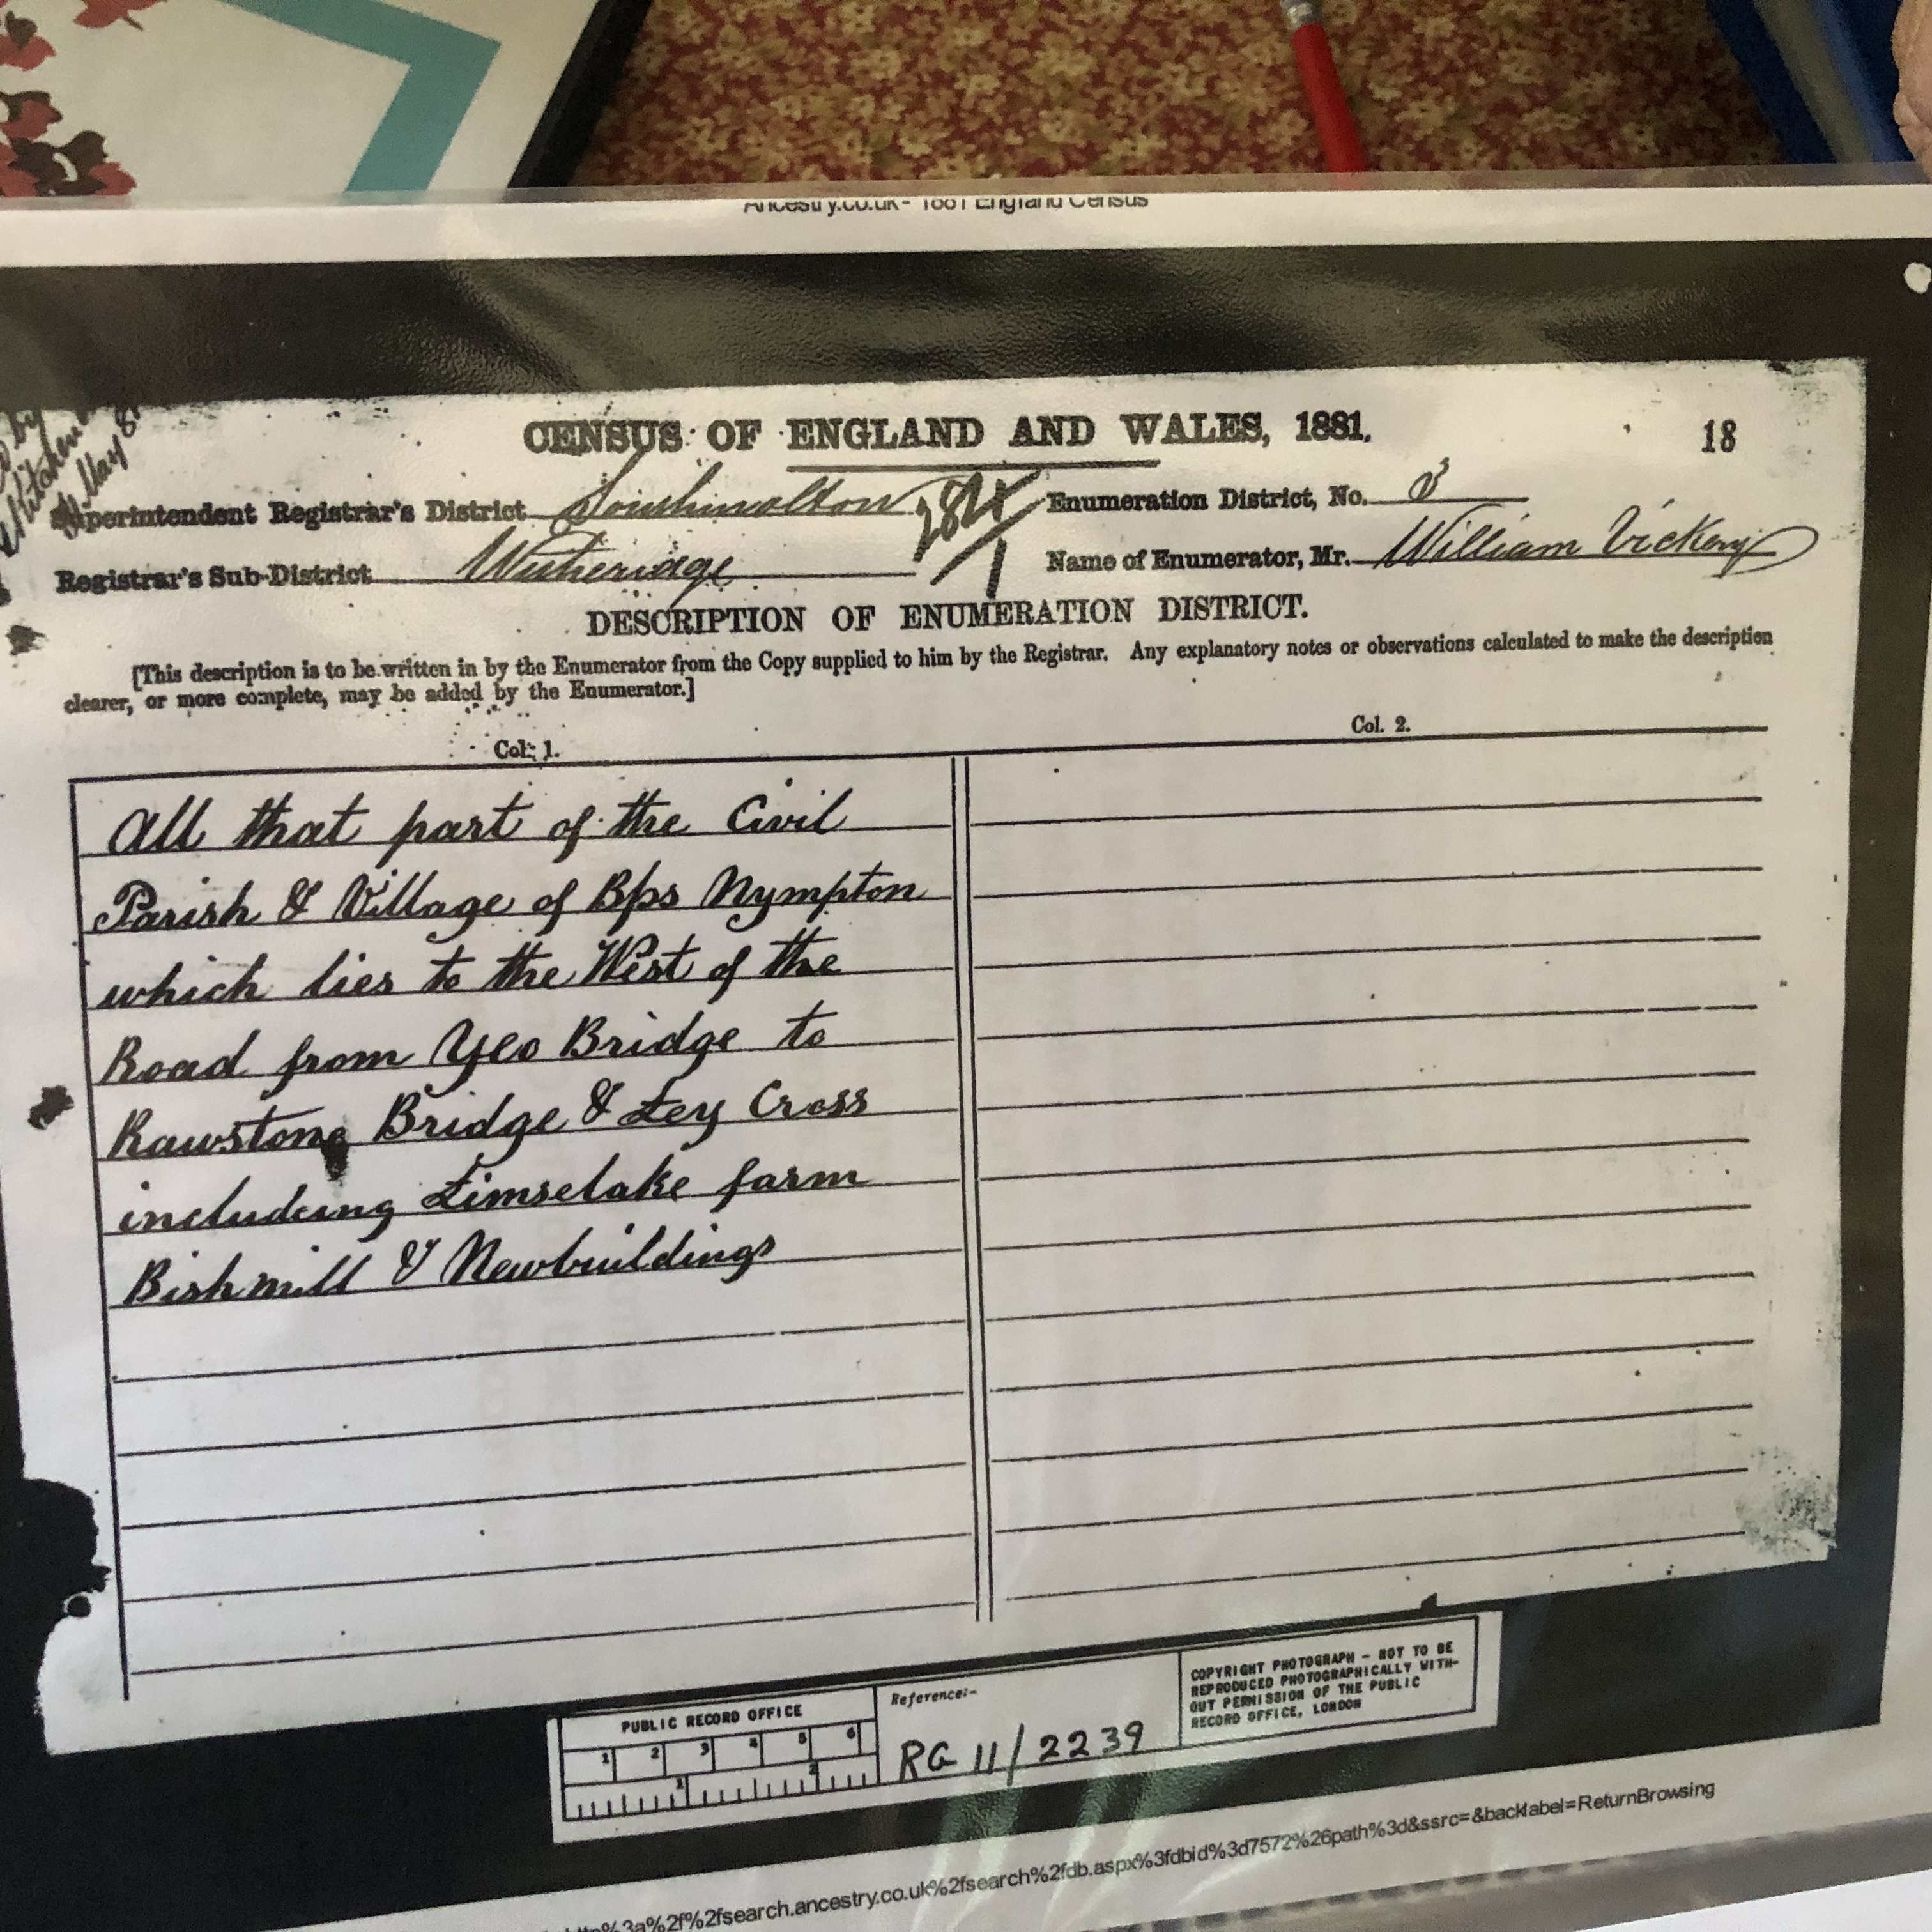 Ancestry.co.uk - 1881 England Census
CENSUS OF ENGLAND AND WALES, 1881.
18
by
Kitchen
May 8
Superintendent Registrar's District Southmolton
Enumeration District, No.
Registrar's Sub-District Witheridge
Name of Enumerator, Mr. William Vickery
DESCRIPTION OF ENUMERATION DISTRICT.
[This description is to be written in by the Enumerator from the Copy supplied to him by the Registrar. Any explanatory notes or observations calculated to make the description
clearer, or more complete, may be added by the Enumerator.]
Col. 1.
Col. 2.
All that part of the Civil
Parish & Village of Bps Nympton
which lies to the West of the
Road from Yeo Bridge to
Rawstone Bridge & Ley Cross
including Limselake farm
Bishmill & Newbuildings
PUBLIC RECORD OFFICE
1 2 3 4 5 6
1 2
Reference:-
RG 11/2239
COPYRIGHT PHOTOGRAPH - NOT TO BE
REPRODUCED PHOTOGRAPHICALLY WITH-
OUT PERMISSION OF THE PUBLIC
RECORD OFFICE, LONDON
%3a%2f%2fsearch.ancestry.co.uk%2fsearch%2fdb.aspx%3fdbid%3d7572%26path%3d&ssrc=&backlabel=ReturnBrowsing